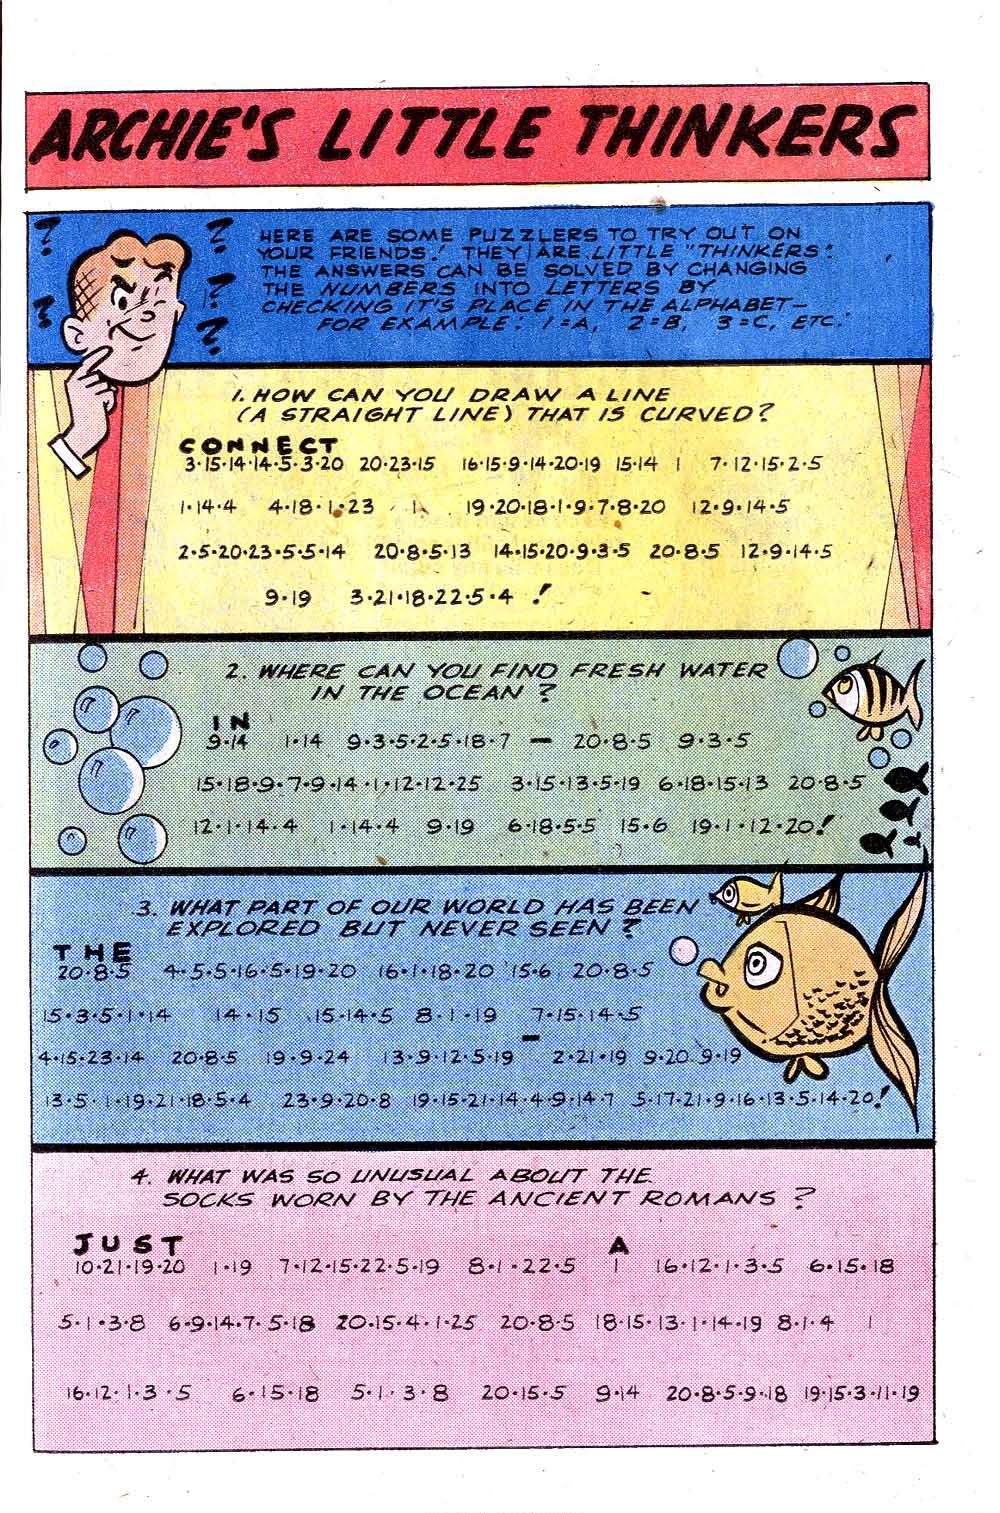 ARCHIE'S LITTLE THINKERS
HERE ARE SOME PUZZLERS TO TRY OUT ON
YOUR FRIENDS! THEY ARE LITTLE "THINKERS".
THE ANSWERS CAN BE SOLVED BY CHANGING
THE NUMBERS INTO LETTERS BY
CHECKING IT'S PLACE IN THE ALPHABET—
FOR EXAMPLE: 1=A, 2=B, 3=C, ETC.
? ? ? ? ?
1. HOW CAN YOU DRAW A LINE
(A STRAIGHT LINE) THAT IS CURVED?
CONNECT
3·15·14·14·5·3·20 20·23·15 16·15·9·14·20·19 15·14 1 7·12·15·2·5
1·14·4 4·18·1·23 1 19·20·18·1·9·7·8·20 12·9·14·5
2·5·20·23·5·5·14 20·8·5·13 14·15·20·9·3·5 20·8·5 12·9·14·5
9·19 3·21·18·22·5·4 !
2. WHERE CAN YOU FIND FRESH WATER
IN THE OCEAN?
IN
9·14 1·14 9·3·5·2·5·18·7 — 20·8·5 9·3·5
15·18·9·7·9·14·1·12·12·25 3·15·13·5·19 6·18·15·13 20·8·5
12·1·14·4 1·14·4 9·19 6·18·5·5 15·6 19·1·12·20!
3. WHAT PART OF OUR WORLD HAS BEEN
EXPLORED BUT NEVER SEEN?
THE
20·8·5 4·5·5·16·5·19·20 16·1·18·20 15·6 20·8·5
15·3·5·1·14 14·15 15·14·5 8·1·19 7·15·14·5
4·15·23·14 20·8·5 19·9·24 13·9·12·5·19 — 2·21·19 9·20 9·19
13·5·1·19·21·18·5·4 23·9·20·8 19·15·21·14·4·9·14·7 5·17·21·9·16·13·5·14·20!
4. WHAT WAS SO UNUSUAL ABOUT THE
SOCKS WORN BY THE ANCIENT ROMANS?
JUST A
10·21·19·20 1·19 7·12·15·22·5·19 8·1·22·5 1 16·12·1·3·5 6·15·18
5·1·3·8 6·9·14·7·5·18 20·15·4·1·25 20·8·5 18·15·13·1·14·19 8·1·4 1
16·12·1·3·5 6·15·18 5·1·3·8 20·15·5 9·14 20·8·5·9·18 19·15·3·11·19